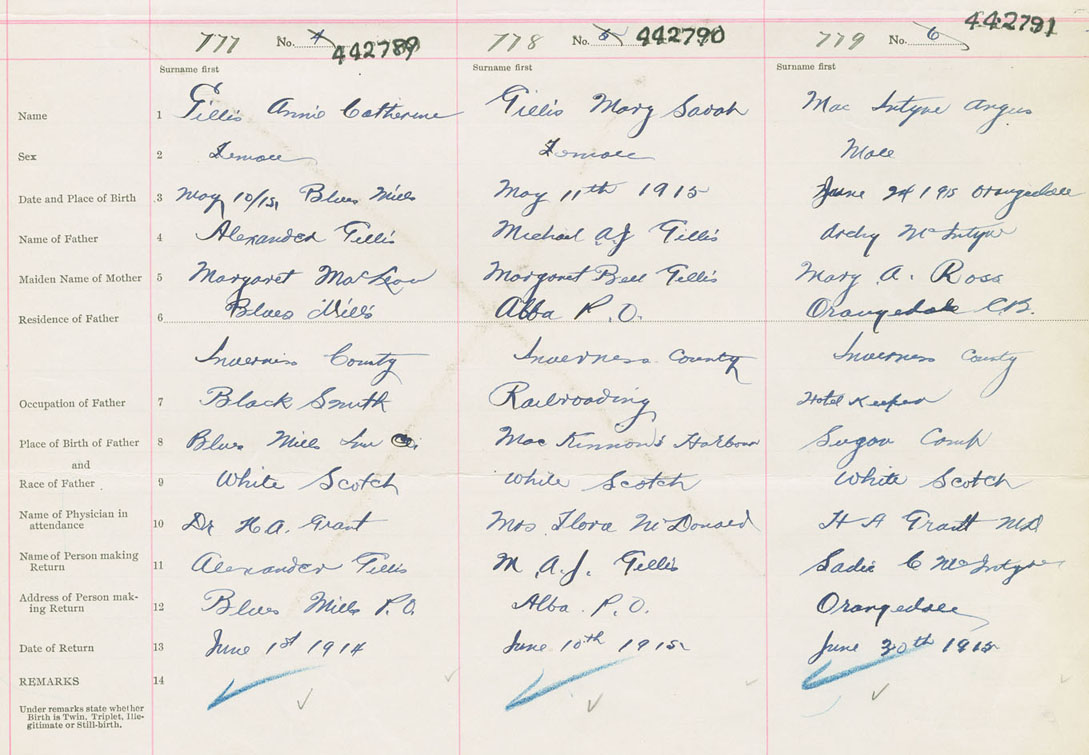 777 No. 4 442789 778 No. 5 442790 779 No. 6 442791
Surname first Surname first Surname first
Name 1 Gillis Annie Catherine Gillis Mary Sarah Mac Intyre Angus
Sex 2 Female Female Male
Date and Place of Birth 3 May 10/15, Blues Mills May 11th 1915 June 24 1915 Orangedale
Name of Father 4 Alexander Gillis Michael A.J Gillis Archy McIntyre
Maiden Name of Mother 5 Margaret MacLean Margaret Bell Gillis Mary A. Ross
Residence of Father 6 Blues Mills Alba P.O. Orangedale C.B.
Inverniss County Inverness County Inverness County
Occupation of Father 7 Black Smith Railroading Hotel Keeper
Place of Birth of Father 8 Blues Mills Inv Co. Mac Kinnon's Harbour Sugar Camp
and
Race of Father 9 White Scotch White Scotch White Scotch
Name of Physician in
attendance 10 Dr H.A. Grant Mrs Flora McDonald H A Grant MD
Name of Person making
Return 11 Alexander Gillis M. A.J. Gillis Sadie C McIntyre
Address of Person mak-
ing Return 12 Blues Mills P.O. Alba P.O. Orangedale
Date of Return 13 June 1st 1914 June 10th 1915 June 30th 1915
REMARKS 14
Under remarks state whether
Birth is Twin, Triplet, Ille-
gitimate or Still-birth.